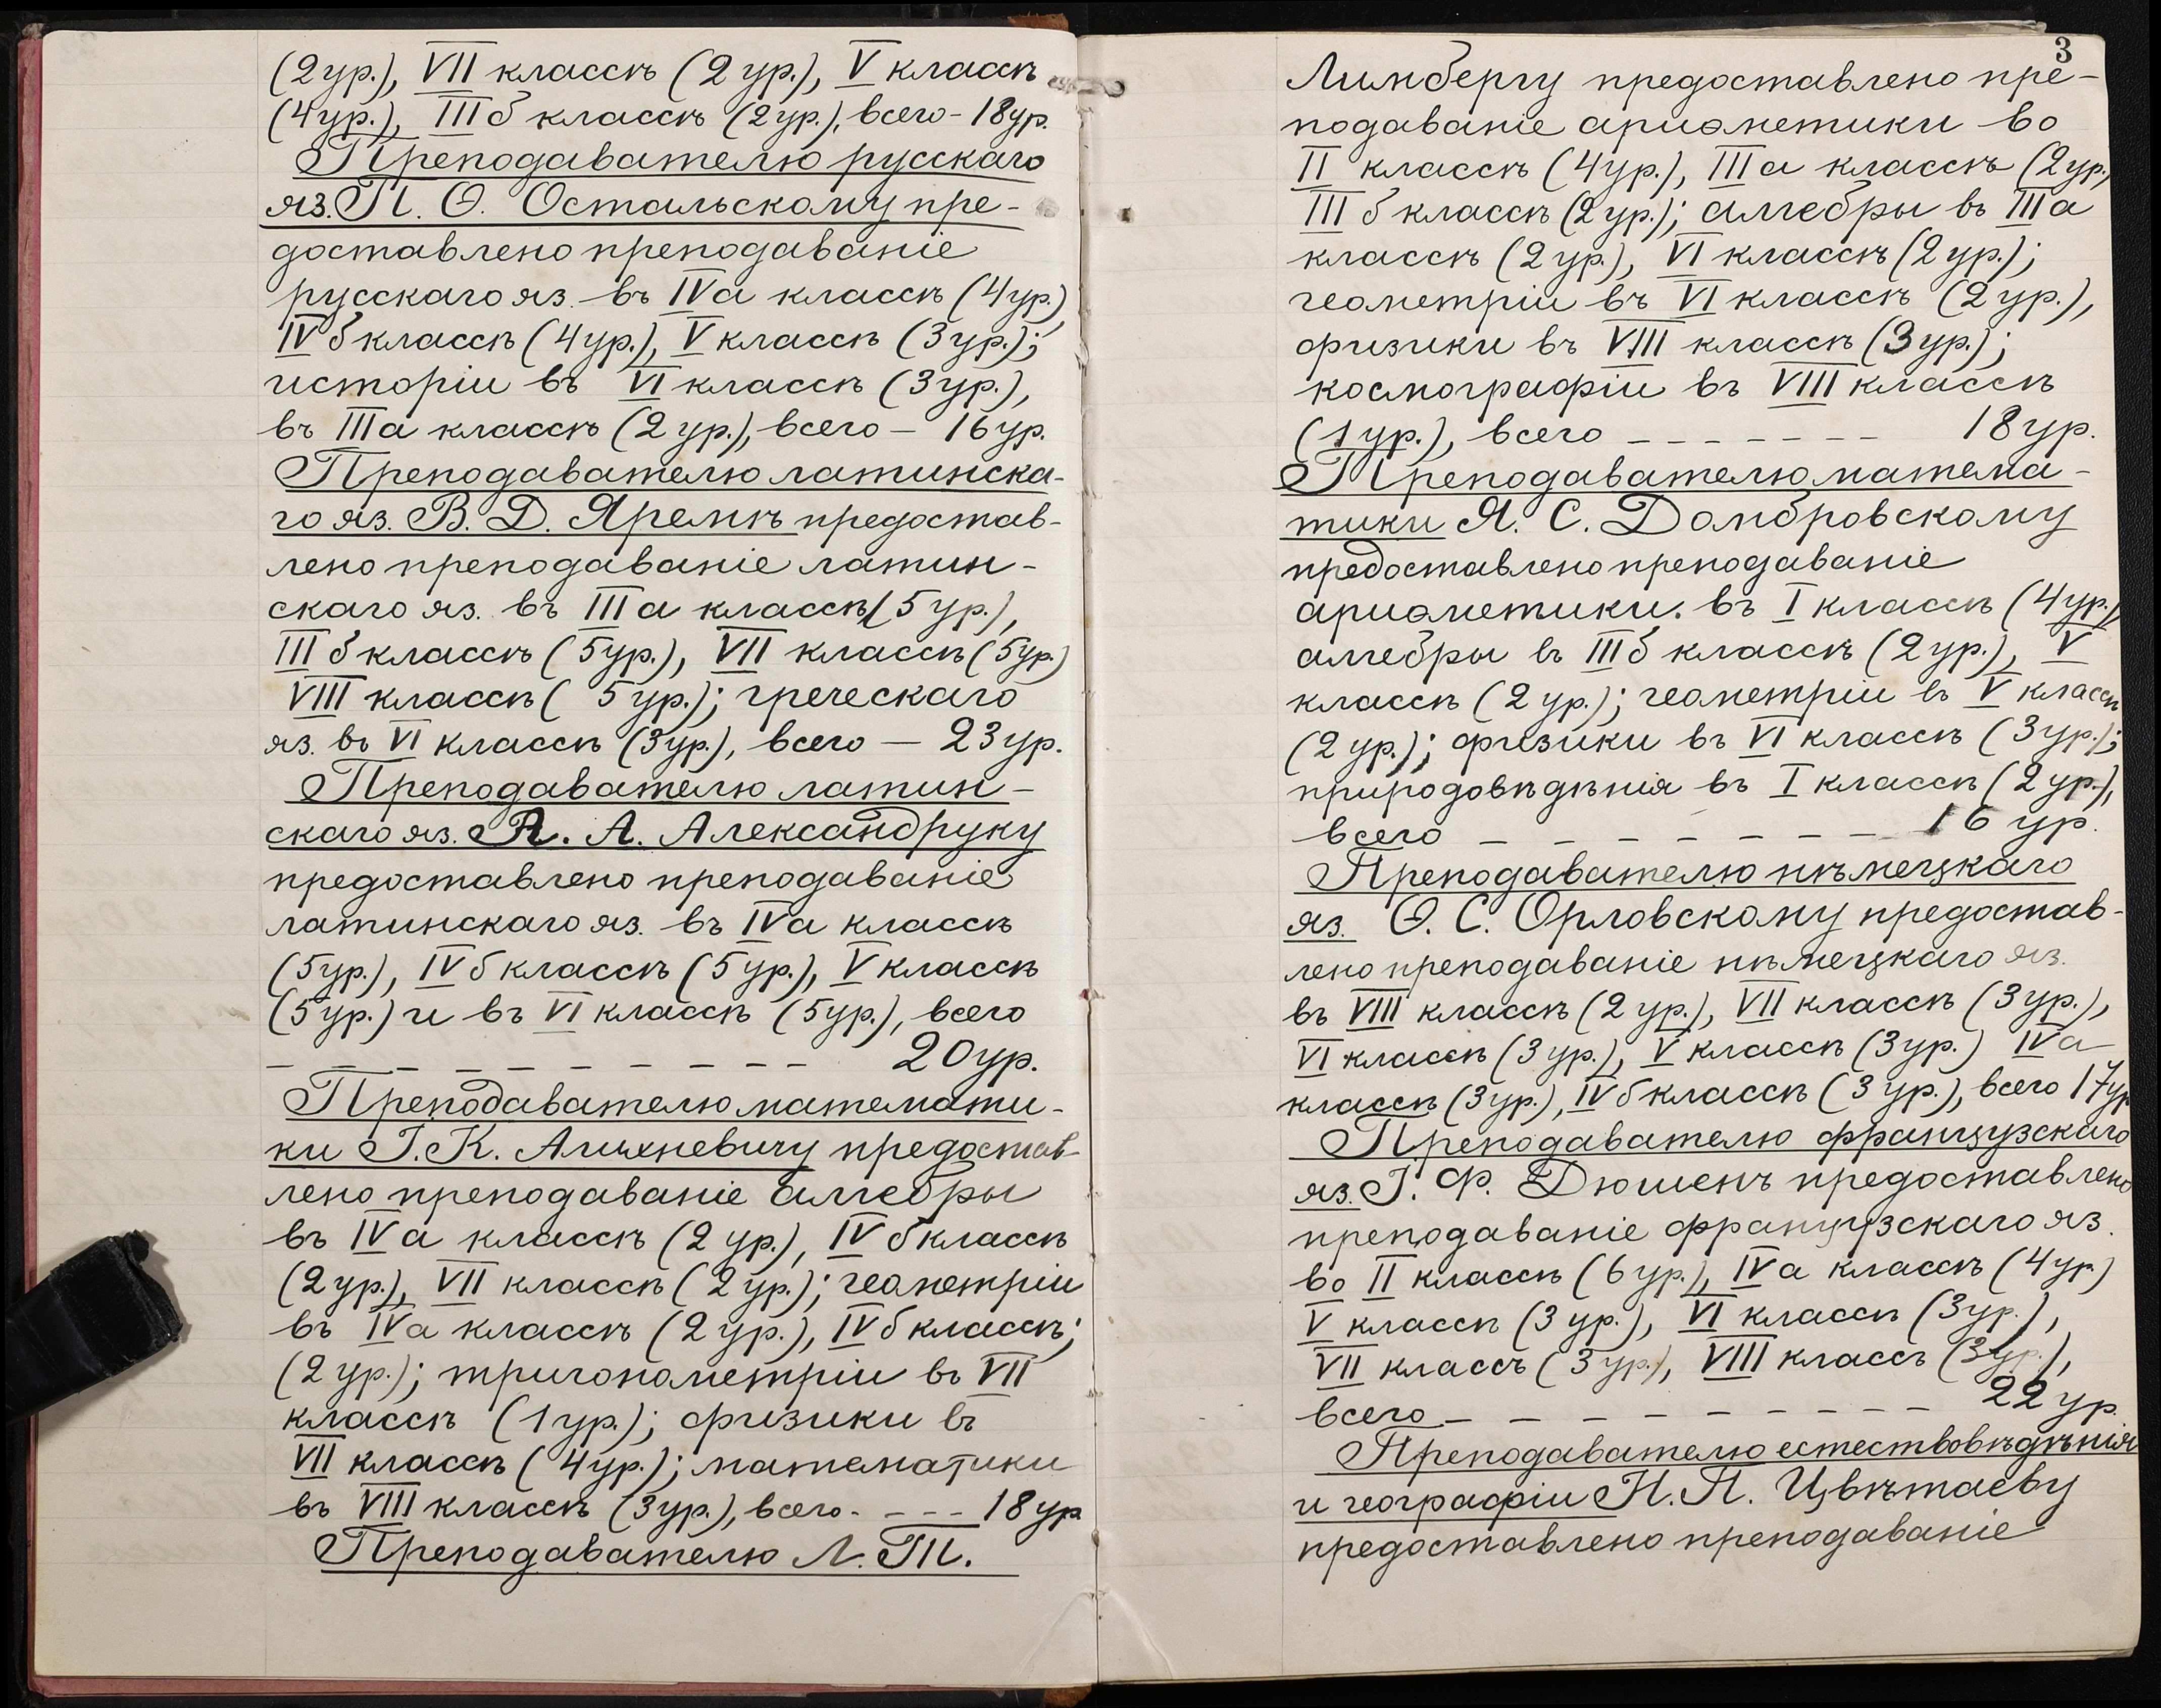 (2 ур.), VII классѣ (2 ур.), V классѣ
(4 ур.), III б классѣ (2 ур.), всего - 18 ур.
Преподавателю русскаго
яз. П. Ѳ. Остальскому пре-
доставлено преподаваніе
русскаго яз. въ IVа классѣ (4 ур.)
IV б классѣ (4 ур.), V классѣ (3 ур.);
исторіи въ VI классѣ (3 ур.),
въ IIIа классѣ (2 ур.), всего — 16 ур.
Преподавателю латинска-
го яз. В. Д. Яремѣ предостав-
лено преподаваніе латин-
скаго яз. въ IIIа классѣ (5 ур.),
III б классѣ (5 ур.), VII классѣ (5 ур.)
VIII классѣ (5 ур.); греческаго
яз. въ VI классѣ (3 ур.), всего — 23 ур.
Преподавателю латин-
скаго яз. А. А. Александруку
предоставлено преподаваніе
латинскаго яз. въ IVа классѣ
(5 ур.), IV б классѣ (5 ур.), V классѣ
(5 ур.) и въ VI классѣ (5 ур.), всего
— — — — — — — — — — 20 ур.
Преподавателю математи-
ки І. К. Алихневичу предостав-
лено преподаваніе алгебры
въ IVа классѣ (2 ур.), IV б классѣ
(2 ур.), VII классѣ (2 ур.); геометріи
въ IVа классѣ (2 ур.), IV б классѣ;
(2 ур.); тригонометріи въ VII
классѣ (1 ур.); физики въ
VII классѣ (4 ур.); математики
въ VIII классѣ (3 ур.), всего - - - - 18 ур
Преподавателю Л. М.
3
Лимбергу предоставлено пре-
подаваніе ариѳметики во
II классѣ (4 ур.), IIIа классѣ (2 ур.)
III б классѣ (2 ур.); алгебры въ IIIа
классѣ (2 ур.), VI классѣ (2 ур.);
геометріи въ VI классѣ (2 ур.),
физики въ VIII классѣ (3 ур.);
космографіи въ VIII классѣ
(1 ур.), всего - - - - - - - 18 ур.
Преподавателю матема-
тики Я. С. Домбровскому
предоставлено преподаваніе
ариѳметики. въ I классѣ (4 ур.),
алгебры въ III б классѣ (2 ур.), V
классѣ (2 ур.); геометріи въ V классѣ
(2 ур.); физики въ VI классѣ (3 ур.);
природовѣдѣнія въ I классѣ (2 ур.),
всего — — — — — — — — 16 ур.
Преподавателю нѣмецкаго
яз. Ѳ. С. Орловскому предостав-
лено преподаваніе нѣмецкаго яз.
въ VIII классѣ (2 ур.), VII классѣ (3 ур.),
VI классѣ (3 ур.), V классѣ (3 ур.) IVа
классѣ (3 ур.), IV б классѣ (3 ур.), всего 17 ур
Преподавателю французскаго
яз. І. Ф. Дюшенъ предоставлено
преподаваніе французскаго яз.
во II классѣ (6 ур.), IVа классѣ (4 ур)
V классѣ (3 ур.), VI классѣ (3 ур.),
VII классъ (3 ур.), VIII классъ (3 ур.),
всего — — — — — — — — — 22 ур
Преподавателю естествовѣдѣнія
и географіи Н. П. Цвѣтаеву
предоставлено преподаваніе